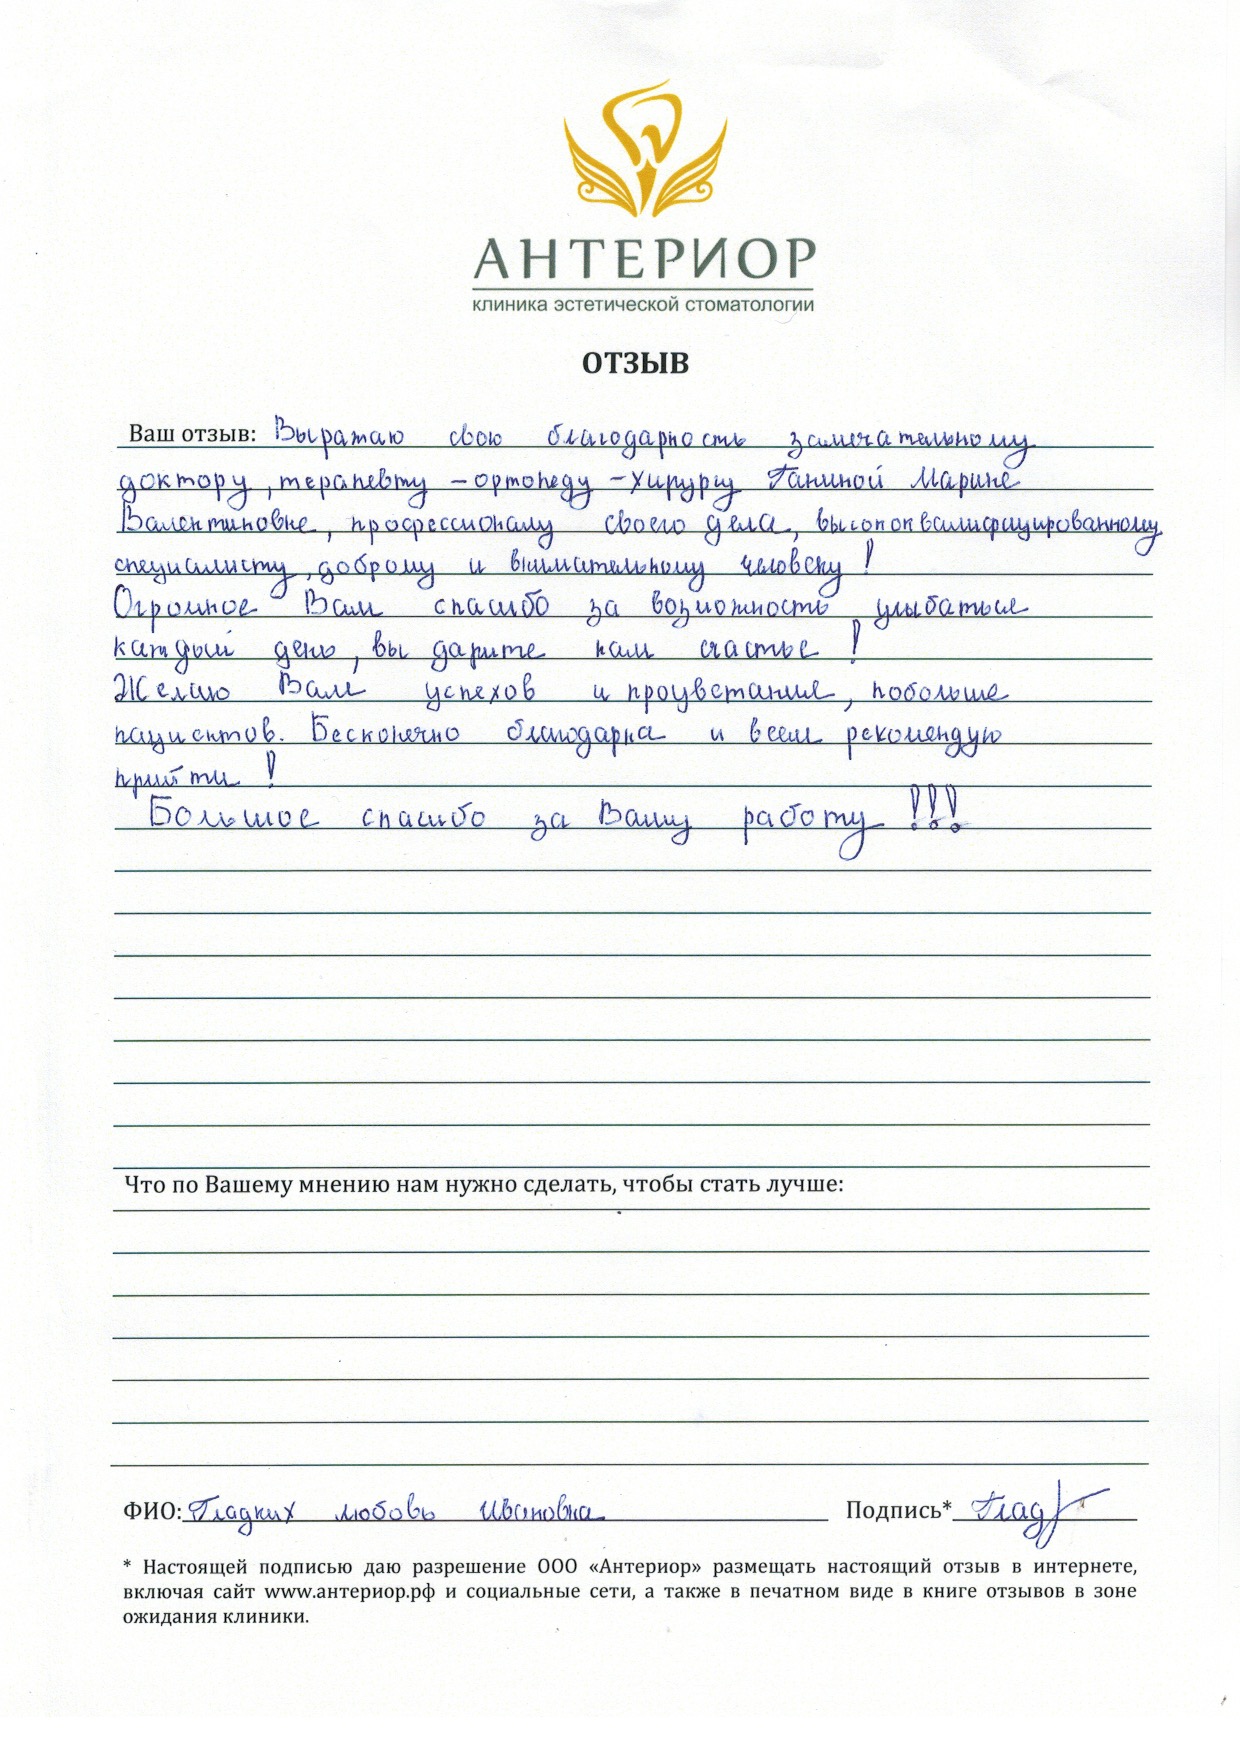 АНТЕРИОР
клиника эстетической стоматологии
ОТЗЫВ
Ваш отзыв: Выражаю свою благодарность замечательному
доктору, терапевту - ортопеду - хирургу Ганиной Марине
Валентиновне, профессионалу своего дела, высококвалифицированному
специалисту, доброму и внимательному человеку!
Огромное Вам спасибо за возможность улыбаться
каждый день, вы дарите нам счастье!
Желаю Вам успехов и процветания, побольше
пациентов. Бесконечно благодарна и всем рекомендую
прийти!
Большое спасибо за Вашу работу!!!
Что по Вашему мнению нам нужно сделать, чтобы стать лучше:
ФИО: Гладких Любовь Ивановна Подпись* Глад
* Настоящей подписью даю разрешение ООО «Антериор» размещать настоящий отзыв в интернете,
включая сайт www.антериор.рф и социальные сети, а также в печатном виде в книге отзывов в зоне
ожидания клиники.